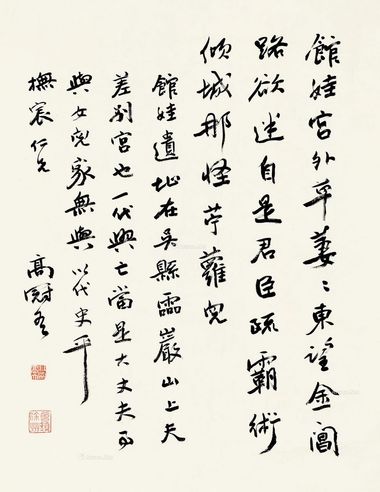 館娃宮外草萋〻東望金閶
路欲迷自是君臣疏霸術
傾城那怪苧蘿兒
館娃遺址在吳縣靈巖山上夫
差別宮也一代興亡當是大丈夫
與女兒家無與以代史平
撫宸仁兄
高冠吾